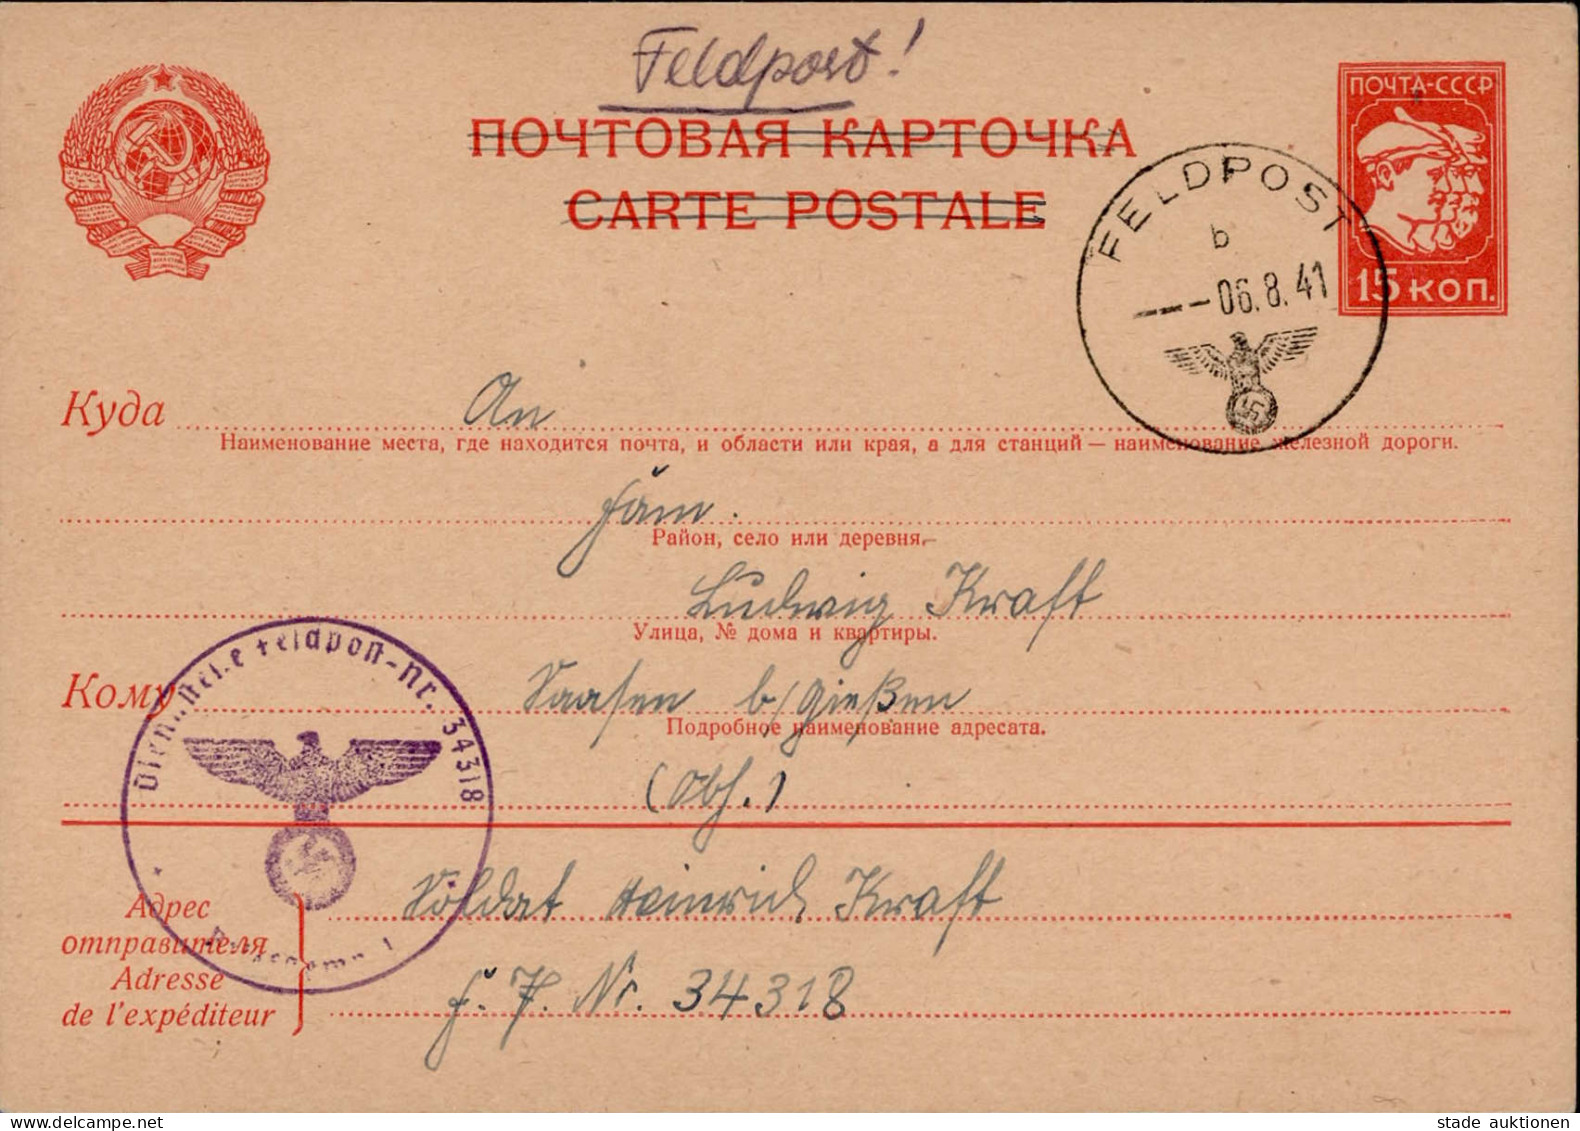 Feldpost!
ПОЧТОВАЯ КАРТОЧКА
CARTE POSTALE
ПОЧТА-СССР
15 КОП.
FELDPOST
b
--06.8.41
Куда
An
Наименование места, где находится почта, и области или края, а для станций — наименование железной дороги.
Fam.
Район, село или деревня.
Ludwig Kraft
Улица, № дома и квартиры.
Кому
Saasen b/Gießen
Подробное наименование адресата.
(Obh.)
Dienststelle Feldpost-Nr. 34318
Адрес отправителя
Adresse de l'expéditeur
Soldat Heinrich Kraft
F. P. Nr. 34318
stade auktionen